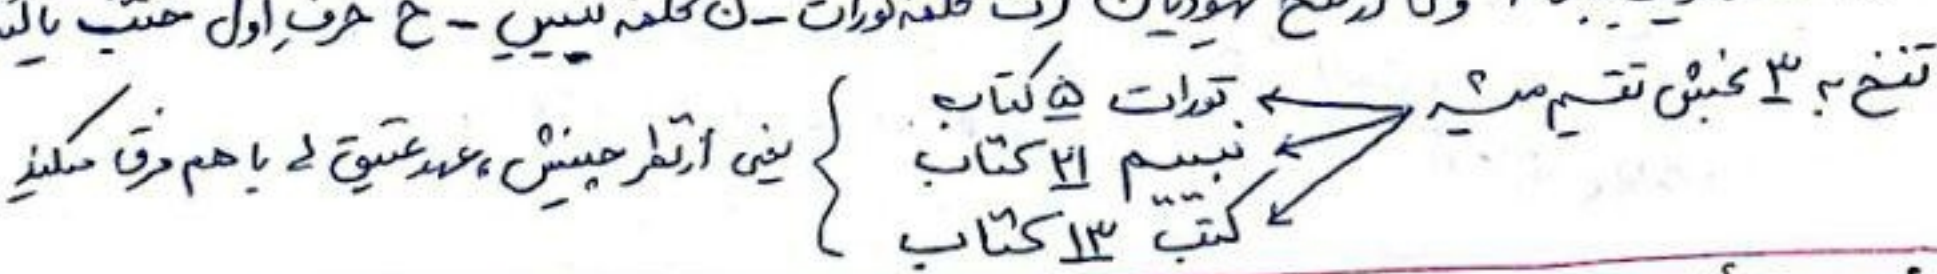 یهودیان کلمه تورات - ن کلمه نبییم - خ حرفِ اول
تنخ به ۳ بخش تقسیم میشه
تورات ۵ کتاب
نبییم ۲۱ کتاب
کتب ۱۳ کتاب
یعنی از نظر چینش، عهد عتیق ها با هم فرق میکنند